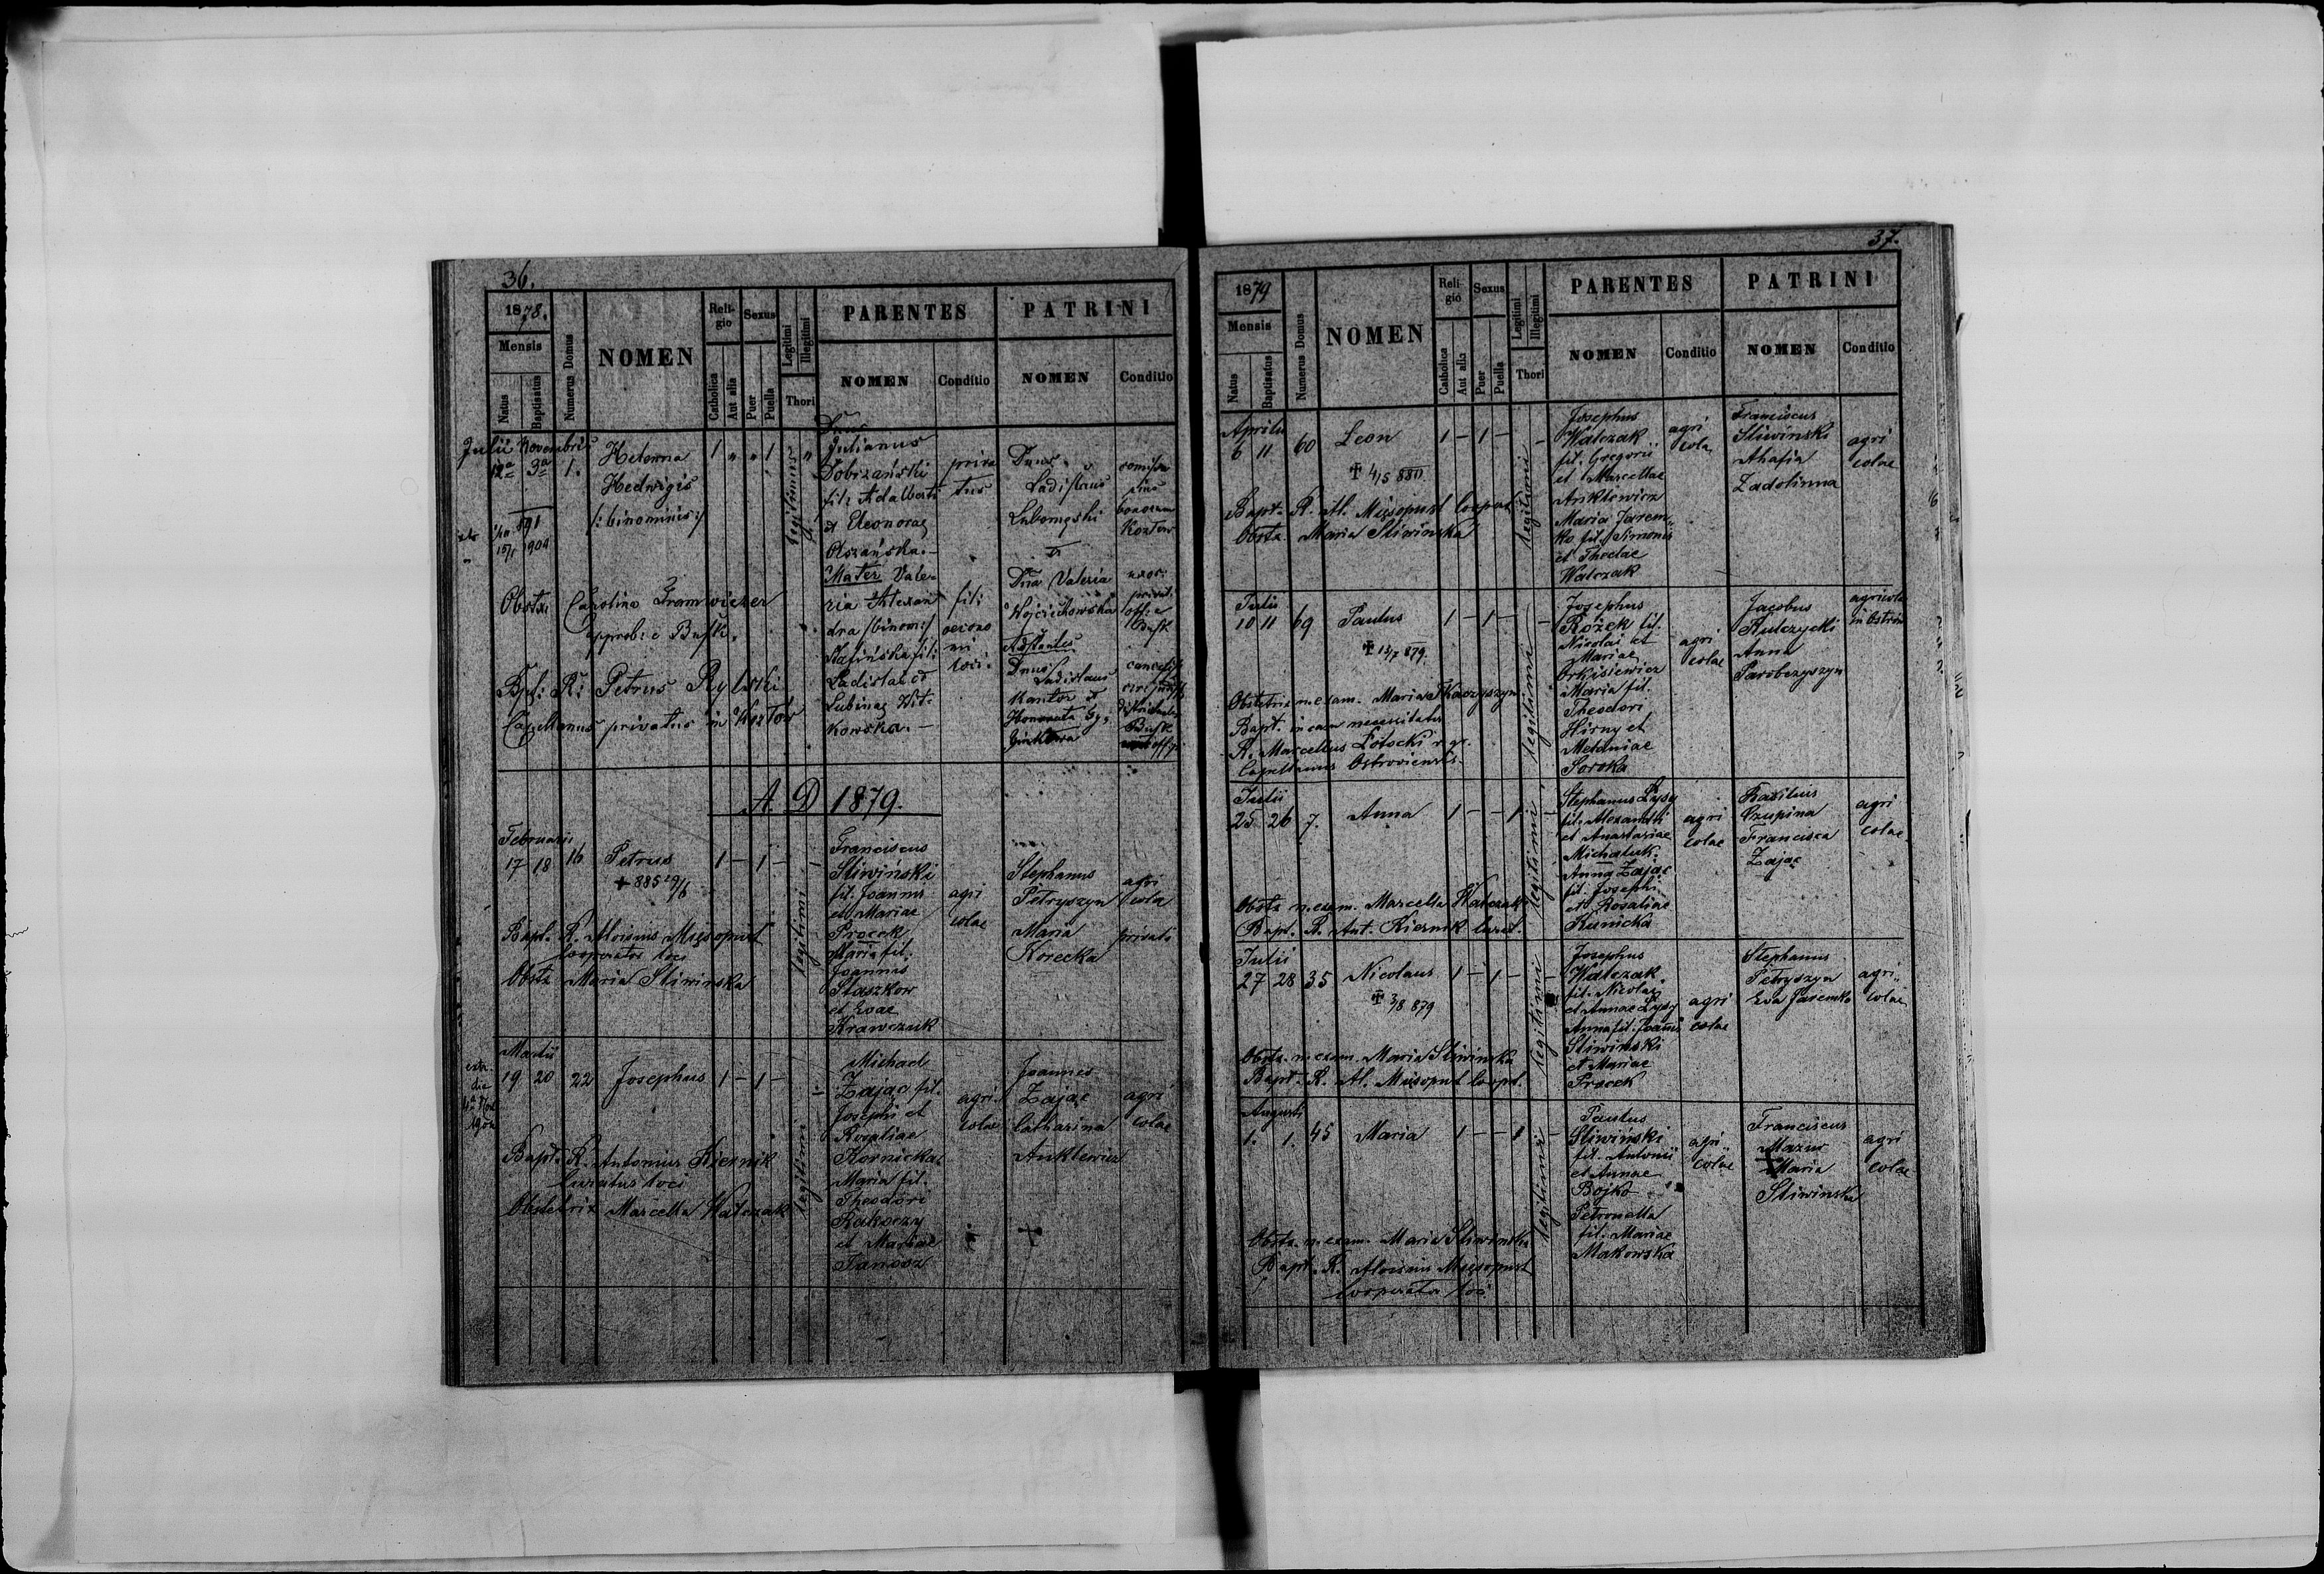 36.
1878.
Mensis
Natus
Baptisatus
Numerus Domus
NOMEN
Reli-
gio
Catholica
Aut alia
Sexus
Puer
Puella
Legitimi
Illegitimi
Thori
PARENTES
NOMEN
Conditio
PATRINI
NOMEN
Conditio
Julii Novembris
12a 3a 1.
Helena
Hedwigis
/:binominis:/
1 „ „ 1 „
Dnus
Julianus
Dobrzański
fil: Adalberti
et Eleonorae
Olszańska.—
Mater Vale-
ria Alexan
dra /binom:/
fil:
Ladislai et
Lubinae Wit-
kowska.—
priva
tus
fil:
oecono
mi
loci.
Dnus
Ladislaus
Lubomęski
et
Dna Valeria
Wojciechowska
Astantes
Dnus
Ladislaus
Kantor et
bonorum
Kozłow
uxor:
privati
Busk
Obstx Carolina
approb: e Busk.
Bpt: R: Petrus Rylski
Capellanus privatus in Kozłów
A D 1879.
Februarii
17 18 16 Petrus 1 — 1 — —
+ 885 19/6
legitimi
Franciscus
Sliwiński
fil. Joannis
et Mariae
Procek
Maria fil.
Joannis
Staszkow
et Evae
Krawczuk
agri
colae
Stephanus
Petryszyn
Maria
Korecka
agri
cola
privati
Bapt. R. Aloisius Mięsopust
Cooperator loci
Obstx Maria Sliwinska
Martii
19 20 22 Josephus 1 — 1 — —
legitimi
Michael
Zając fil.
Josephi et
Rosaliae
Kornicka
Maria fil.
Theodori
Rakoczy
et Mariae
Tanasz
agri
colae
Joannes
Zając
Catharina
Anklewicz
agri
colae
Bapt. R. Antonius Kiernik
Curatus loci
Obstetrix Marcella Walczak
37.
1879
Mensis
Natus
Baptisatus
Numerus Domus
NOMEN
Reli-
gio
Catholica
Aut alia
Sexus
Puer
Puella
Legitimi
Illegitimi
Thori
PARENTES
NOMEN
Conditio
PATRINI
NOMEN
Conditio
Aprilis
6 11 60 Leon 1 — 1 — —
+ 4/5 880
legitimi
Josephus
Walczak
fil. Gregorii
et Marcellae
Anklewicz
Maria Jarem-
ko fil. Simonis
et Theclae
Walczak
agri
cola
Franciscus
Sliwinski
Ahafia
Zadolinna
agri
colae
Bapt. R. Al. Mięsopust Coopert
Obstx. Maria Sliwinska
Julii
10 11 69 Paulus 1 — 1 — —
+ 13/7 879.
legitimi
Josephus
Rożek fil.
Nicolai et
Mariae
Orkisiewicz
Maria fil.
Theodori
Hirny et
Melaniae
Soroka
agri
colae
Jacobus
Kulczycki
Anna
Parobczyszyn
agricola
in Ostrów
Obstetrix n. exam. Maria Tkaczyszyn
Bapt. in casu necessitatis
R. Marcellus Łotocki r. gr.
Capellanus Ostroviensis.
Julii
25 26 7. Anna 1 — — 1 —
legitimi
Stephanus Łysy
fil. Alexandri
et Anastasiae
Michaluk
Anna Zając
fil. Josephi
et Rosaliae
Kunicka
agri
colae
Basilius
Czupina
Francisca
Zając
agri
colae
Obstx n. exam. Marcella Walczak
Bapt. R. Ant. Kiernik Curat.
Julii
27 28 35 Nicolaus 1 — 1 — —
+ 3/8 879
legitimi
Josephus
Walczak
fil. Nicolai
et Annae Łysy
Anna fil. Joannis
Sliwinski
et Mariae
Procek
agri
colae
Stephanus
Petryszyn
Eva Jaremko
agri
colae
Obstx. n. exam. Maria Sliwinska
Bapt. R. Al. Mięsopust Coopt.
Augusti
1. 1. 45 Maria 1 — — 1 —
legitimi
Paulus
Sliwiński
fil. Antonii
et Annae
Bojko
Petronella
fil. Mariae
Makowska
agri
colae
Franciscus
Mazur
Maria
Sliwinska
agri
colae
Obstx. n. exam. Maria Sliwinska
Bapt. R. Aloisius Mięsopust
Cooperator loci